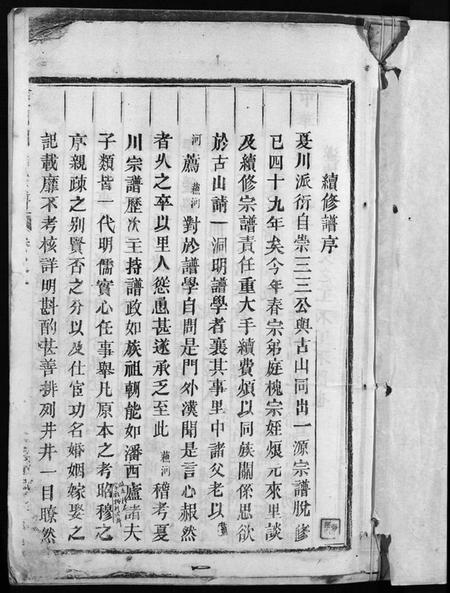 續修譜序
夏川派衍自崇三三公與古山同出一源宗譜脫修
已四十九年矣今年春宗弟庭槐宗姪煥元來里談
及續修宗譜責任重大手續費煩以同族關係思欲
於古山請一洞明譜學者襄其事里中諸父老以
河薦蘊河對於譜學自問是門外漢聞是言心赧然
者久之卒以里人慫恿甚遂承之至此蘊河稽考夏
川宗譜歷次主持譜政如族祖朝能如潘西廬諸夫
子類皆一代明儒實心任事舉凡原本之考昭穆之
序親疎之別賢否之分以及仕宦功名婚姻嫁娶之
記載靡不考核詳明斟酌甚善排列井井一目瞭然